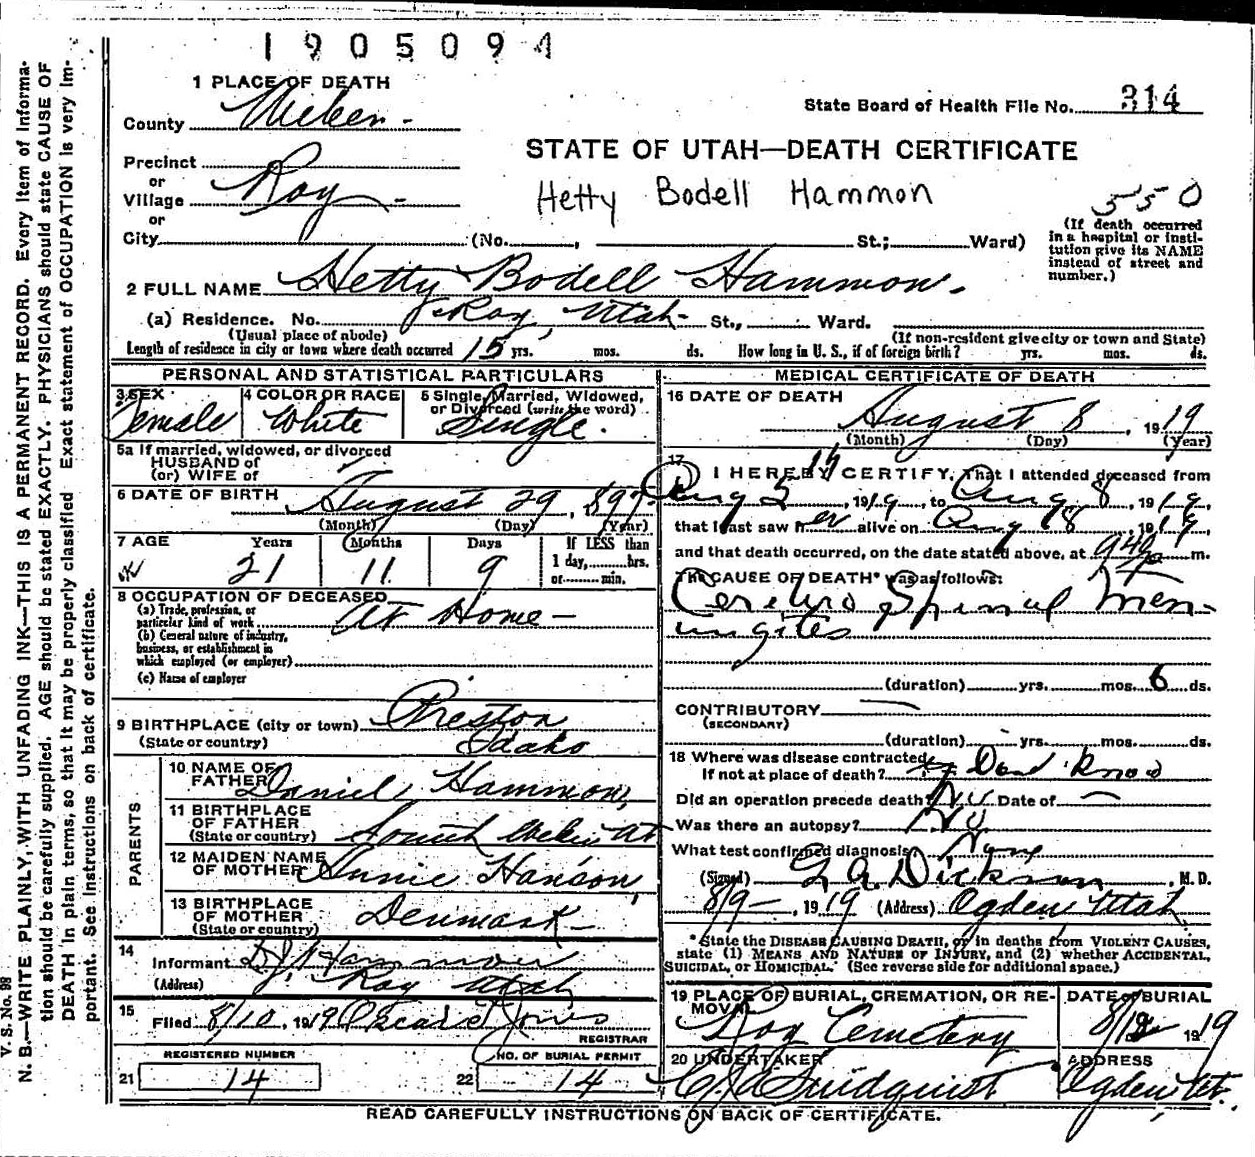 1905094
1 PLACE OF DEATH
State Board of Health File No. 314
County Weber -
STATE OF UTAH—DEATH CERTIFICATE
Precinct
or
Village Roy -
or
City (No. , St.; Ward)
Hetty Bodell Hammon
550
(If death occurred
in a hospital or insti-
tution give its NAME
instead of street and
number.)
2 FULL NAME Hetty Bodell Hammon -
(a) Residence. No. Roy, Utah - St., Ward.
(Usual place of abode) (If non-resident give city or town and State)
Length of residence in city or town where death occurred 15 yrs. mos. ds. How long in U. S., if of foreign birth? yrs. mos. ds.
PERSONAL AND STATISTICAL PARTICULARS
3 SEX
Female
4 COLOR OR RACE
White
5 Single, Married, Widowed,
or Divorced (write the word)
Single.
5a If married, widowed, or divorced
HUSBAND of
(or) WIFE of
6 DATE OF BIRTH August 29, 1897
(Month) (Day) (Year)
7 AGE Years Months Days If LESS than
21 11 9 1 day, hrs.
or min.
8 OCCUPATION OF DECEASED
(a) Trade, profession, or
particular kind of work At Home -
(b) General nature of industry,
business, or establishment in
which employed (or employer)
(c) Name of employer
9 BIRTHPLACE (city or town) Preston
(State or country) Idaho
PARENTS
10 NAME OF
FATHER Daniel Hammon,
11 BIRTHPLACE
OF FATHER
(State or country) South Weber Ut
12 MAIDEN NAME
OF MOTHER Annie Hanson
13 BIRTHPLACE
OF MOTHER
(State or country) Denmark -
14
Informant D. J. Hammon
(Address) Roy Utah
15
Filed 8/10, 1919 Jones
REGISTRAR
REGISTERED NUMBER NO. OF BURIAL PERMIT
21 14 22 14
MEDICAL CERTIFICATE OF DEATH
16 DATE OF DEATH
August 8, 1919
(Month) (Day) (Year)
17
I HEREBY CERTIFY, That I attended deceased from
Aug 5th, 1919, to Aug 8, 1919,
that I last saw her alive on Aug 8, 1919
and that death occurred, on the date stated above, at m.
The CAUSE OF DEATH* was as follows:
Cerebro Spinal Men-
ingites
(duration) yrs. mos. 6 ds.
CONTRIBUTORY
(SECONDARY)
(duration) yrs. mos. ds.
18 Where was disease contracted
If not at place of death? Dont know
Did an operation precede death? No Date of —
Was there an autopsy? No
What test confirmed diagnosis? None
(Signed) Dickson, M. D.
8/9 -, 1919 (Address) Ogden Utah
*State the DISEASE CAUSING DEATH, or in deaths from VIOLENT CAUSES,
state (1) MEANS AND NATURE OF INJURY, and (2) whether ACCIDENTAL,
SUICIDAL, or HOMICIDAL. (See reverse side for additional space.)
19 PLACE OF BURIAL, CREMATION, OR RE-
MOVAL
Roy Cemetery
DATE OF BURIAL
8/12 1919
20 UNDERTAKER
Lindquist
ADDRESS
Ogden Ut.
READ CAREFULLY INSTRUCTIONS ON BACK OF CERTIFICATE.
V. S. No. 98
N. B.—WRITE PLAINLY, WITH UNFADING INK—THIS IS A PERMANENT RECORD. Every item of informa-
tion should be carefully supplied. AGE should be stated EXACTLY. PHYSICIANS should state CAUSE OF
DEATH in plain terms, so that it may be properly classified. Exact statement of OCCUPATION is very im-
portant. See instructions on back of certificate.